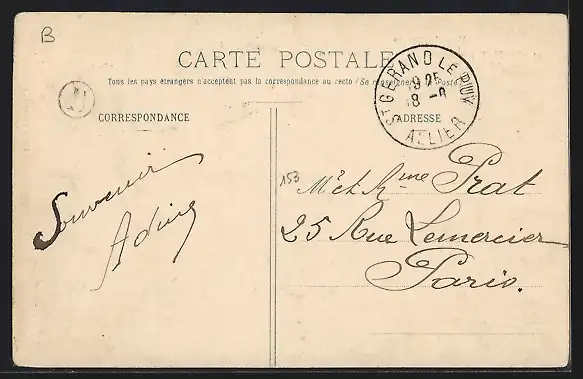 B
CARTE POSTALE
Tous les pays étrangers n'acceptent pas la correspondance au recto (Se renseigner à la Poste)
CORRESPONDANCE
ADRESSE
ST GERAND LE PUY
19 25
8 -8
ALLIER
Souvenir
Adine
153
Mr et Mme Prat
25 Rue Lemercier
Paris.